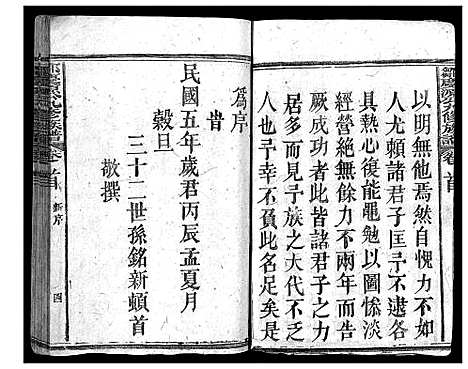 以明無他焉然自愧力不
人尤頼諸君子匡予不逮各
具熱心復能黽勉以圖慘淡
經營絶無餘力不兩年而告
厥成功者此皆諸君子之力
居多而見予族之大代不乏
人也予幸不負此名足矣是
爲序
旹
民國五年歲君丙辰孟夏月
穀旦
三十二世孫銘新頓首
敬撰
首
新序
四